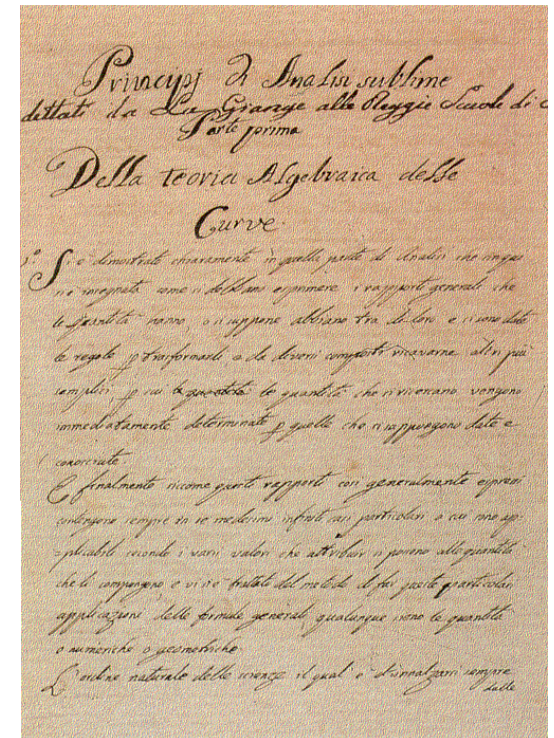 Principj di Analisi sublime
dettati da La Grange alle Reggie Scuole di
Parte prima
Della teoria Algebraica delle
Curve.
1.° Si è dimostrato chiaramente in quella parte di Analisi che
si è insegnata come si debbano esprimere i rapporti generali che
le quantità hanno, o si suppone abbiano tra di loro e si sono date
le regole p trasformarli, o da diversi composti ricavarne altri più
semplici, p cui le quantità che si ricercano vengono
immediatamente determinate p quelle che si suppongono date e
conosciute.
E finalmente siccome questi rapporti così generalmente espressi
contengono sempre in se medesimi infiniti casi particolari a cui sono ap-
plicabili secondo i varj valori che attribuir si possono alle quantità
che li compongono, e vi si è trattato del metodo di far queste particolari
applicazioni delle formule generali, qualunque siano le quantità
o numeriche o geometriche.
L'ordine naturale delle scienze il qual è d'innalzarsi sempre
dalle